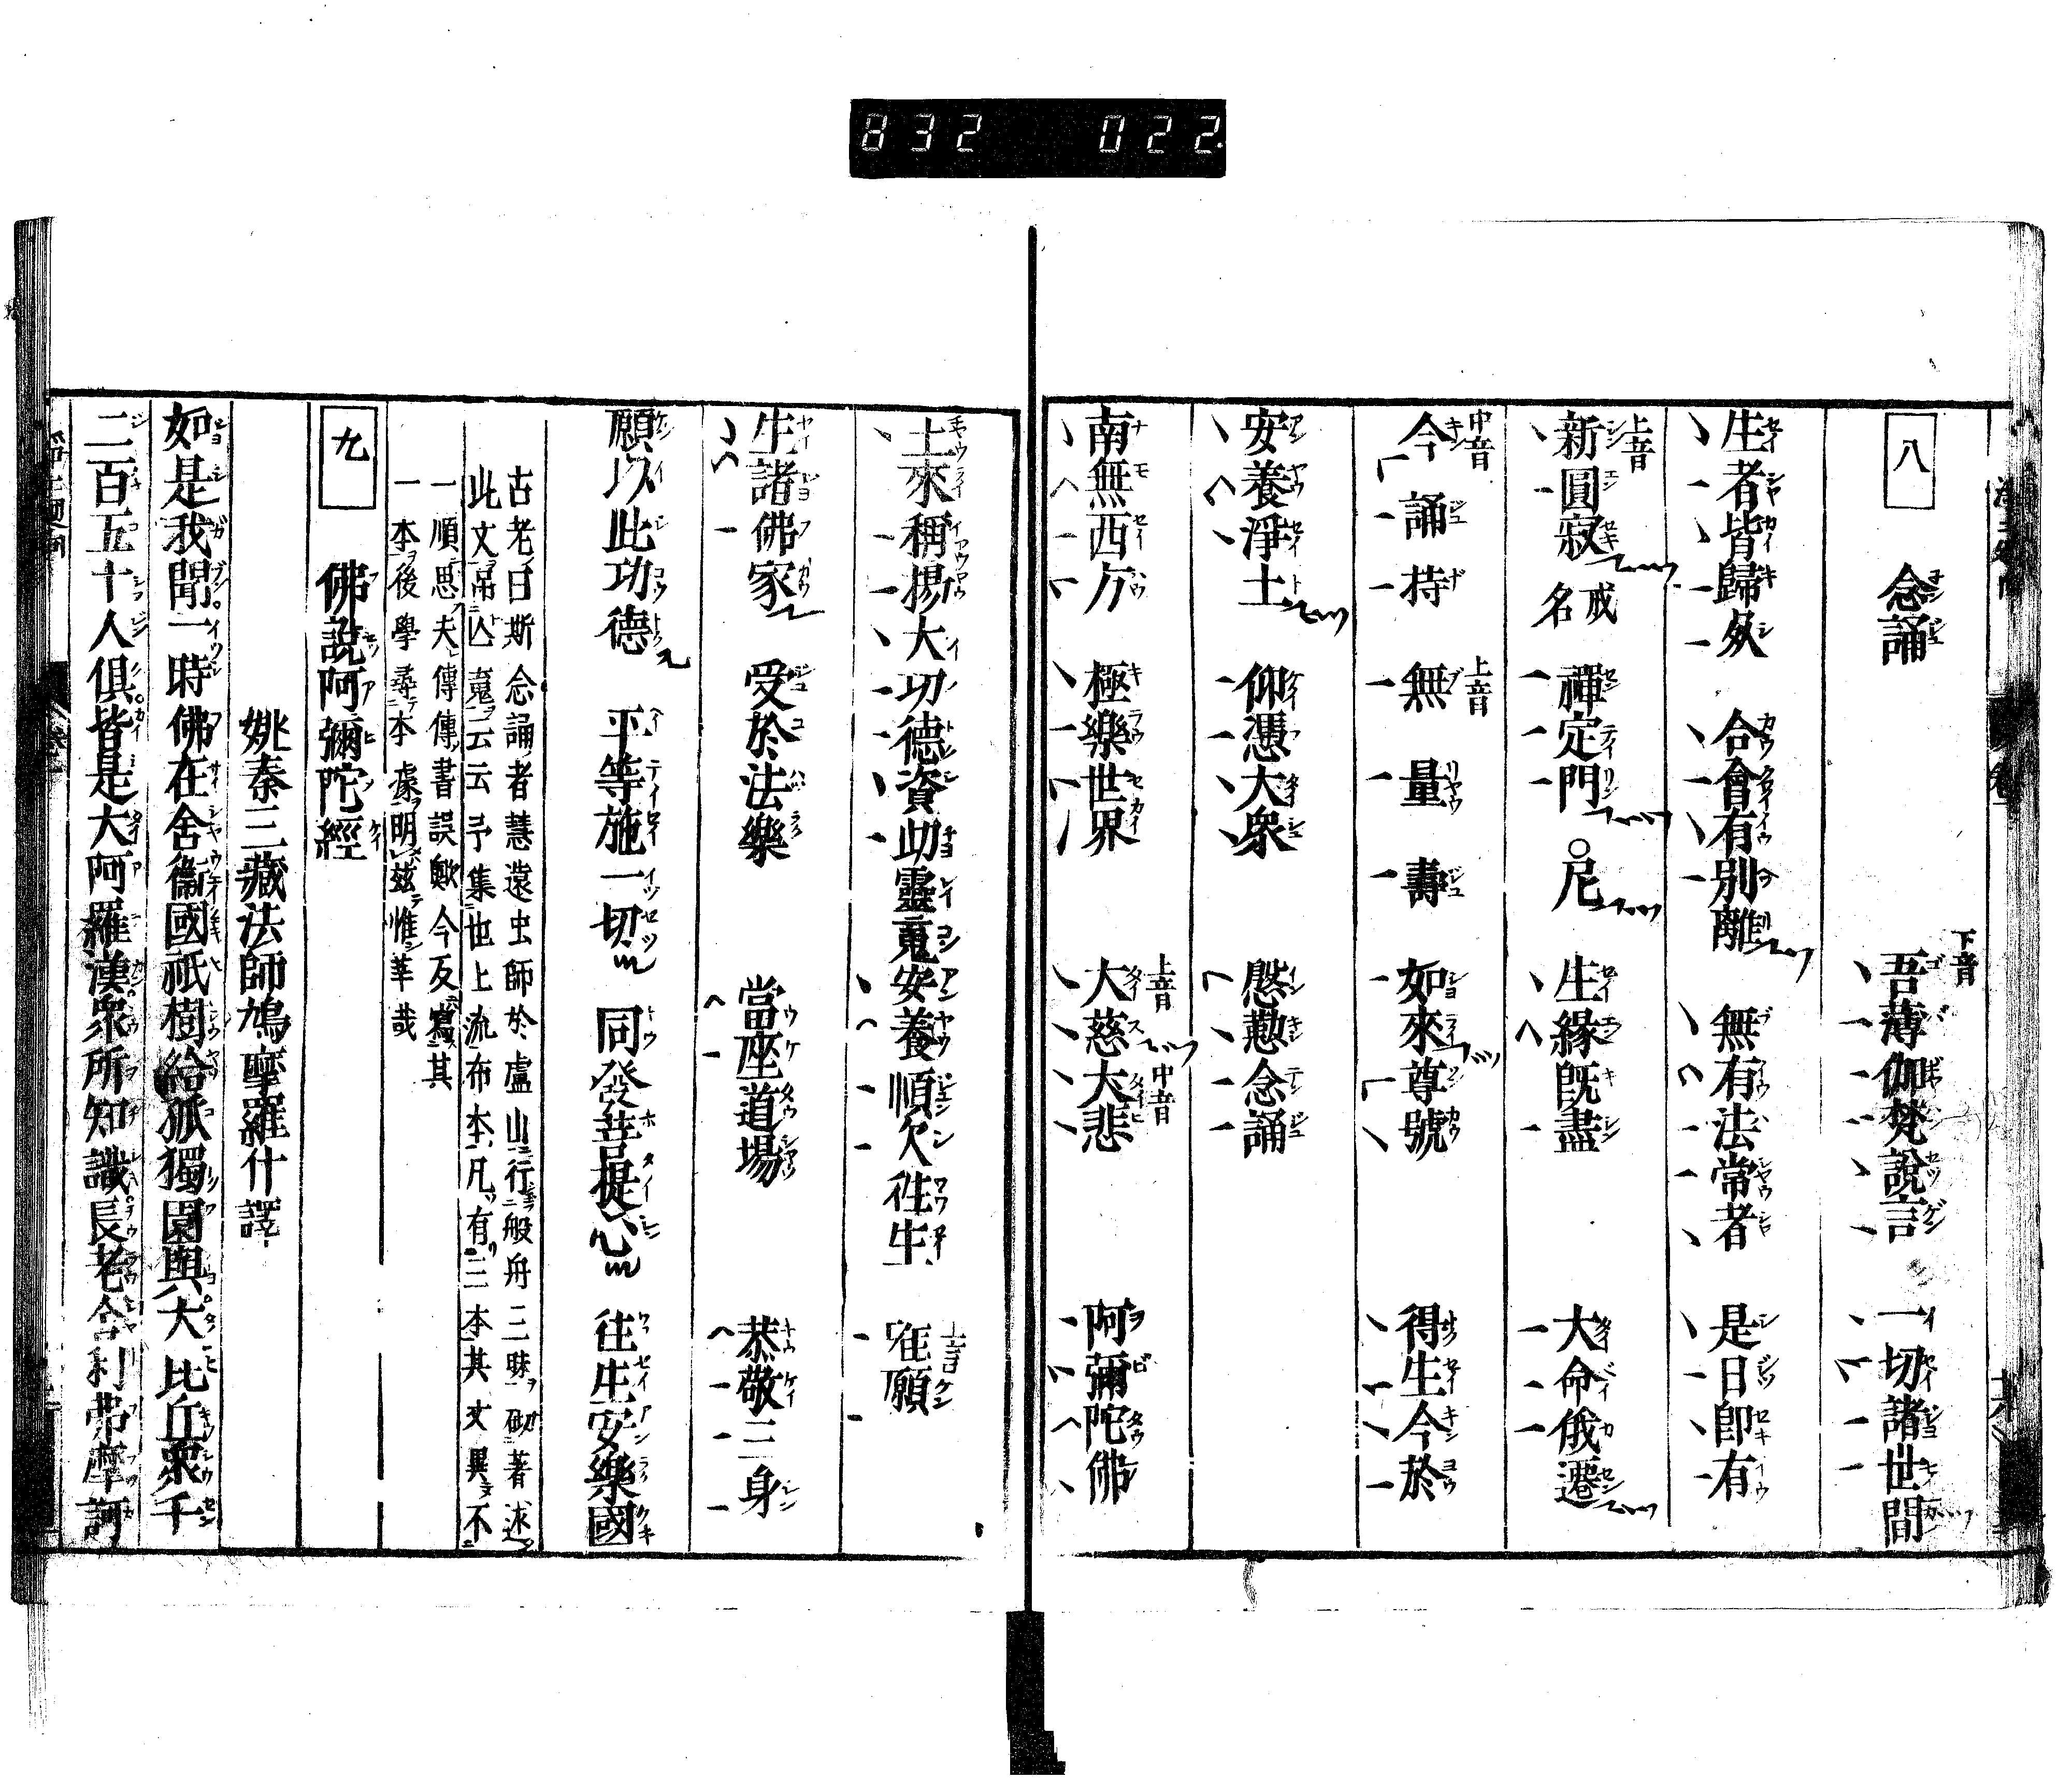 832 022
八 念誦 下音 吾薄伽梵說言 一切諸世間
生者皆歸死 合會有別離 無有法常者 是日卽有
上音 新圓寂 戒名 禪定門 ○尼 生緣既盡 大命俄遷
中音 今誦持 上音 無量壽 如來尊號 得生今於
安養淨土 仰憑大衆 慇懃念誦
南無西方 極樂世界 上音 大慈 中音 大悲 阿彌陀佛
上來稱揚大功德資助靈䰟安養順次往生 上音 唯願
生諸佛家 受於法樂 當座道場 恭敬三身
願以此功德 平等施一切 同發菩提心 往生安樂國
古老曰斯念誦者慧遠法師於盧山行般舟三昧砌著述
此文常亡䰟云云予集也上流布本凡有三本其文異不
一順思夫傳傳書誤歟今反寫其
一本後學尋本據明玆惟幸哉
九 佛說阿彌陀經
姚秦三藏法師鳩摩羅什譯
如是我聞一時佛在舍衞國祇樹給孤獨園與大比丘衆千
二百五十人俱皆是大阿羅漢衆所知識長老舍利弗摩訶